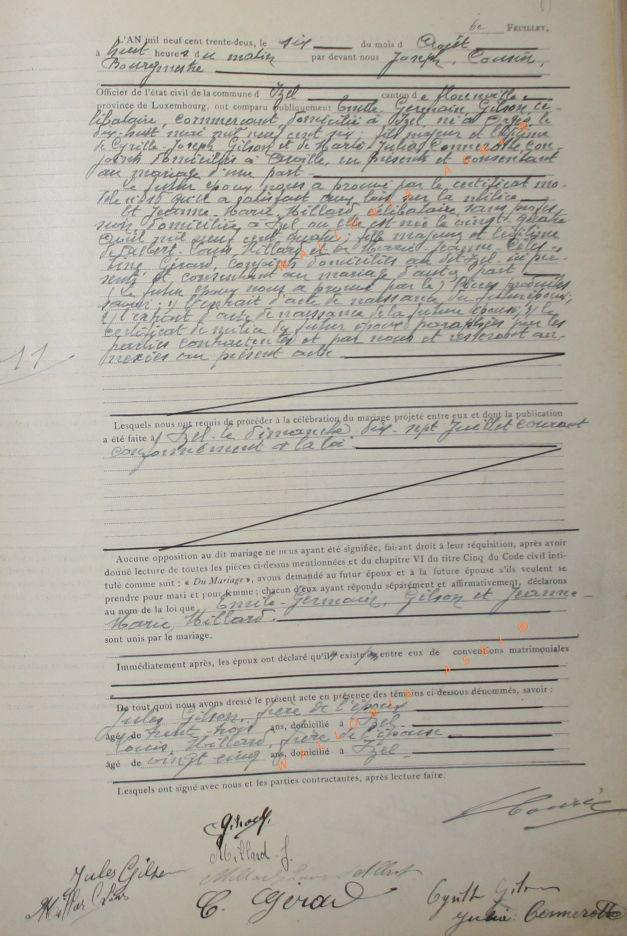 6e FEUILLET.
L'AN mil neuf cent trente-deux, le six du mois d Août
à huit heures du matin par devant nous Joseph, Cousin,
Bourgmestre
Officier de l'état civil de la commune d Izel canton de Florenville
province de Luxembourg, ont comparu publiquement Emile-Germain, Gilson cé-
libataire, commerçant, domicilié à Izel, né à le
dix-huit mai mil neuf cent six; fils majeur et légitime
de Cyrille-Joseph Gilson et de Marie-Julia, Connerotte con-
joints domiciliés à présents et consentant
au mariage d'une part
Le futur époux nous a prouvé par le certificat mo-
dèle qu'il a satisfait aux lois sur la milice
Et Jeanne-Marie, Millard, célibataire, sans profes-
sion, domiciliée à Izel, où elle est née le vingt-quatre
Avril mil neuf cent quatre; fille majeure et légitime
de Albert-Louis, Millard et de Jeanne, Céles-
tine, Girard, conjoints domiciliés au dit Izel ici pré-
sents et consentant au mariage d'autre part
(Le futur époux nous a prouvé par le) Pièces produites
savoir: 1) l'extrait d'acte de naissance du futur époux;
2) l'extrait d'acte de naissance de la future épouse; 3) le
certificat de milice du futur époux paraphés par les
parties contractantes et par nous et resteront an-
nexées au présent acte
11
Lesquels nous ont requis de procéder à la célébration du mariage projeté entre eux et dont la publication
a été faite à Izel le dimanche dix-sept Juillet courant
conformément à la loi
Aucune opposition au dit mariage ne nous ayant été signifiée, faisant droit à leur réquisition, après avoir
donné lecture de toutes les pièces ci-dessus mentionnées et du chapitre VI du titre Cinq du Code civil inti-
tulé comme suit : « Du Mariage », avons demandé au futur époux et à la future épouse s'ils veulent se
prendre pour mari et pour femme ; chacun d'eux ayant répondu séparément et affirmativement, déclarons
au nom de la loi que Emile-Germain, Gilson et Jeanne-
Marie, Millard.
sont unis par le mariage.
Immédiatement après, les époux ont déclaré qu'il existe pas entre eux de conventions matrimoniales
De tout quoi nous avons dressé le présent acte en présence des témoins ci-dessous dénommés, savoir :
Jules Gilson, frère de l'époux
âgé de trente trois ans, domicilié à Izel
Louis, Millard, frère de l'épouse
âgé de vingt cinq ans, domicilié à Izel
Lesquels ont signé avec nous et les parties contractantes, après lecture faite.
Cousin
Gilson
Millard J.
Jules Gilson
Millard Albert
Millard Louis
C. Girard
Cyrille Gilson
Julia Connerotte